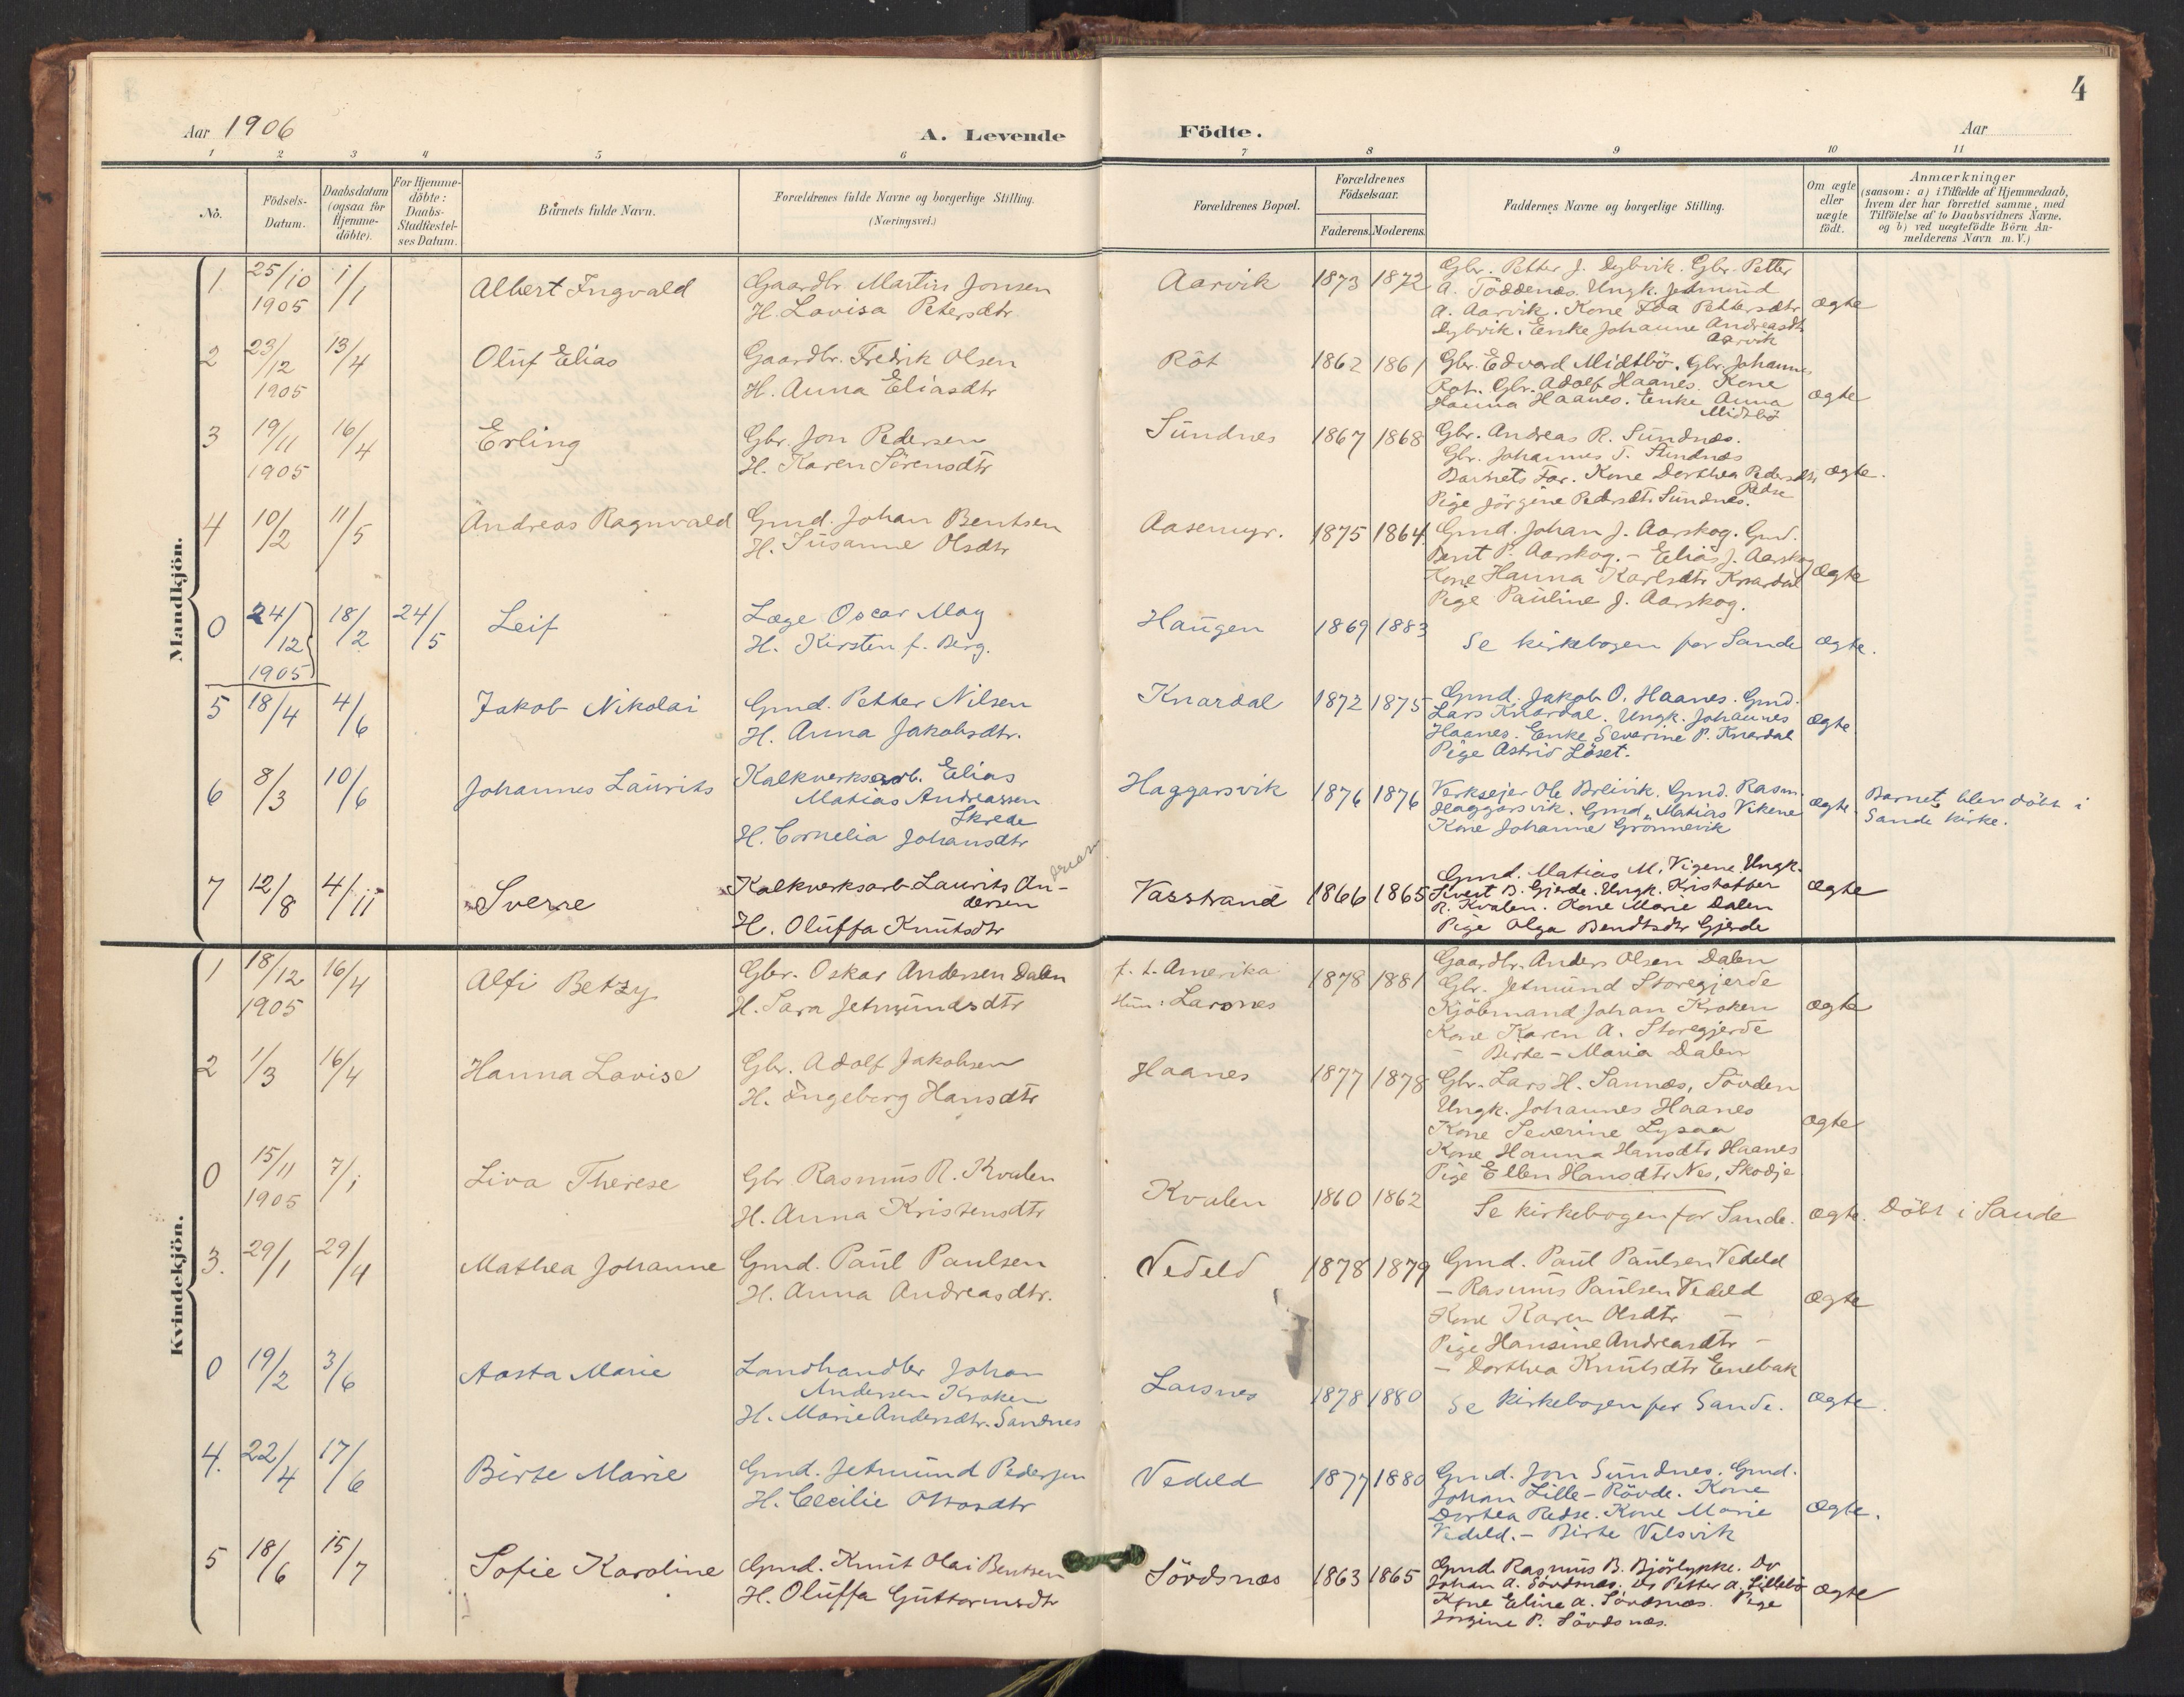 4
Aar 1906
A. Levende
Födte.
Aar
1 2 3 4 5 6 7 8 9 10 11
No.
Födsels-
Datum.
Daabsdatum
(ogsaa for
Hjemme-
döbte).
For Hjemme-
döbte:
Daabs-
Stadfæstel-
ses Datum.
Barnets fulde Navn.
Forældrenes fulde Navne og borgerlige Stilling.
(Næringsvei.)
Forældrenes Bopæl.
Forældrenes
Födselsaar.
Faderens. Moderens.
Faddernes Navne og borgerlige Stilling.
Om ægte
eller
uægte
födt.
Anmærkninger
(saasom: a) i Tilfælde af Hjemmedaab,
hvem der har forrettet samme, med
Tilföielse af to Daabsvidners Navne.
og b) ved uægtefödte Börn An-
melderens Navn m. V.)
Mandkjön.
1
25/10
1905
1/1
Albert Ingvald
Gaardbr Martin Jonsen
H. Lovisa Petersdtr.
Aarvik
1873 1872
Gbr. Petter J. Dybvik. Gbr. Petter
A. Töddenes. Ungk. Jetmund
A. Aarvik. Kone Ida Pettersdtr
Dybvik. Enke Johanne Andreasdtr
Aarvik
ægte
2
23/12
1905
13/4
Oluf Elias
Gaardbr. Fredrik Olsen
H. Anna Eliasdtr
Röt
1862 1861
Gbr. Edvard Midtbö. Gbr. Johannes
Röt. Gbr. Adolf Haanes. Kone
Hanna Haanes. Enke Anna
Midtbö
ægte
3
19/11
1905
16/4
Erling
Gbr. Jon Pedersen
H. Karen Sörensdtr
Sundnes
1867 1868
Gbr. Andreas R. Sundnæs.
Gbr. Johannes T. Sundnæs
Barnets Far. Kone Dorthea Pedersdtr
Redse
Pige Jörgine Pedersdt. Sundnes.
ægte.
4
10/2
11/5
Andreas Ragnvald
Gmd. Johan Bentsen
H. Susanne Olsdtr
Aasemyr.
1875 1864
Gmd. Johan J. Aarskog. Gmd.
Bent P. Aarskog. – Elias J. Aarskog
Kone Hanna Karlsdtr Knardal
Pige Pauline J. Aarskog.
ægte
0
24/12
1905
18/2
24/5
Leif
Læge Oscar May
H. Kirsten f. Berg.
Haugen
1869 1883
Se kirkebogen for Sande
ægte.
5
18/4
4/6
Jakob Nikolai
Gmd. Petter Nilsen
H. Anna Jakobsdtr.
Knardal
1872 1875
Gmd. Jakob O. Haanes. Gmd.
Lars Knardal. Ungk. Johannes
Haanes. Enke Severine P. Knardal
Pige Astrid Löset.
ægte
6
8/3
10/6
Johannes Laurits
Kalkverksarb. Elias
Matias Andreassen
Skrede
H. Cornelia Johansdtr
Haggarsvik
1876 1876
Verksejer Ole Breivik. Gmd. Rasm.
Haggarsvik. Gmd. Matias Vikene
Kone Johanne Grönnevik
ægte.
Barnet blev döbt i
Sande kirke.
7
12/8
4/11
Sverre
Kalkverksarb. Laurits An-
dersen
H. Oluffa Knutsdtr
Vasstrand
1866 1865
Gmd. Matias M. Vigene. Ungk.
Sivert B. Gjerde. Ungk. Kristoffer
R. Kvalen. Kone Marie Dalen
Pige Olga Bendtsdtr Gjerde
ægte
Kvindekjön.
1
18/12
1905
16/4
Alfi Betzy
Gbr. Oskar Andersen Dalen
H. Sara Jetmundsdtr
f. t. Amerika
Hun: Larsnes
1878 1881
Gaardbr. Anders Olsen Dalen
Gbr. Jetmund Storegjerde
Kjöbmand Johan Kroken
Kone Karen A. Storegjerde
– Berte-Maria Dalen
ægte
2
1/3
16/4
Hanna Lovise
Gbr. Adolf Jakobsen
H. Ingeborg Hansdtr
Haanes
1877 1878
Gbr. Lars H. Sannæs, Sövden
Ungk. Johannes Haanes
Kone Severine Lysaa
Kone Hanna Hansdtr Haanes
Pige Ellen Hansdtr Nes, Skodje
ægte
0
15/11
1905
7/1
Liva Therese
Gbr. Rasmus R. Kvalen
H. Anna Kristensdtr
Kvalen
1860 1862
Se kirkebogen for Sande.
ægte.
Döbt i Sande
3.
29/1
29/4
Mathea Johanne
Gmd. Paul Paulsen
H. Anna Andreasdtr.
Vedeld
1878 1879
Gmd. Paul Paulsen Vedeld
– Rasmus Paulsen Vedeld
Kone Karen Olsdtr –
Pige Hansine Andreasdtr –
– Dorthea Knutsdtr Enebak
ægte
0
19/2
3/6
Aasta Marie
Landhandler Johan
Andersen Kroken
H. Marie Andersdtr. Sandnes
Larsnes
1878 1880
Se kirkebogen for Sande.
ægte.
4.
22/4
17/6
Birte Marie
Gmd. Jetmund Pedersen
H. Cecilie Ottosdtr
Vedeld
1877 1880
Gmd. Jon Sundnes. Gmd.
Johan Lille-Rövde. Kone
Dorthea Redse. Kone Marie
Vedeld. – Birte Velsvik
ægte.
5
18/6
15/7
Sofie Karoline
Gmd. Knut Olai Bentsen
H. Oluffa Guttormsdtr
Sövdsnæs
1863 1865
Gmd. Rasmus B. Björlykke. Do
Johan A. Sövdsnæs. Do Petter A. Lillebö
Kone Eline A. Sövdsnæs. Pige
Jörgine P. Sövdsnæs.
ægte